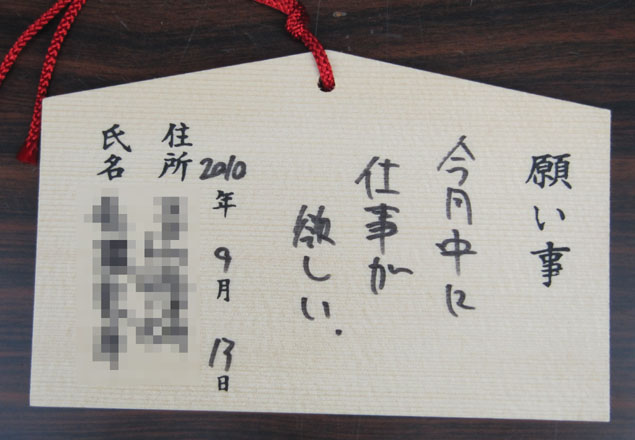 願い事
今月中に
仕事が
欲しい.
2010年 9月 13日
住所
氏名